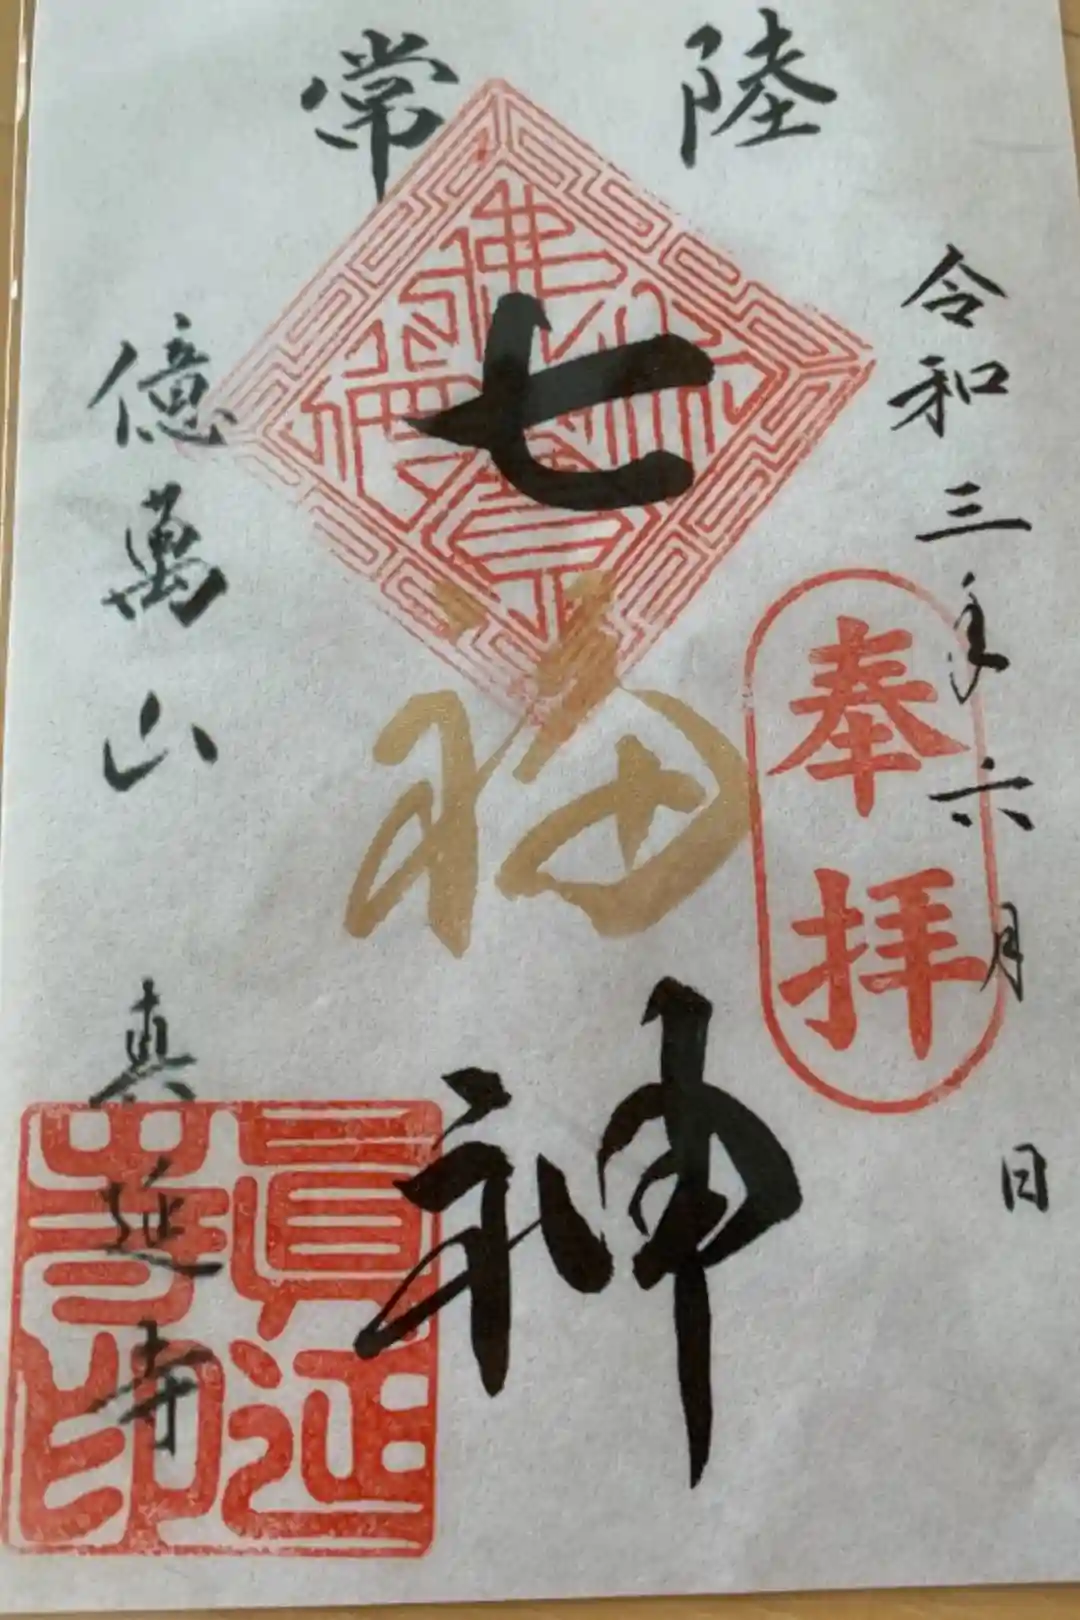 常陸
令和三年六月 日
奉拝
七福神
億萬山
真延寺
眞延
寺印